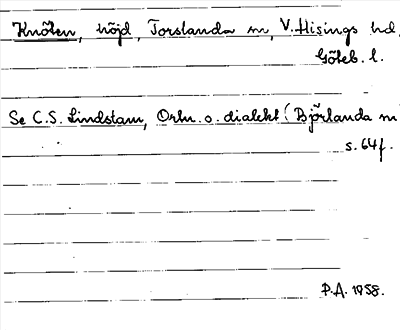 Knöten, höjd, Torslanda sn, V. Hisings hd,
Göteb. l.
Se C.S. Lindstam, Ortn. o. dialekt (Björlanda sn)
s. 64 f.
P.A. 1958.